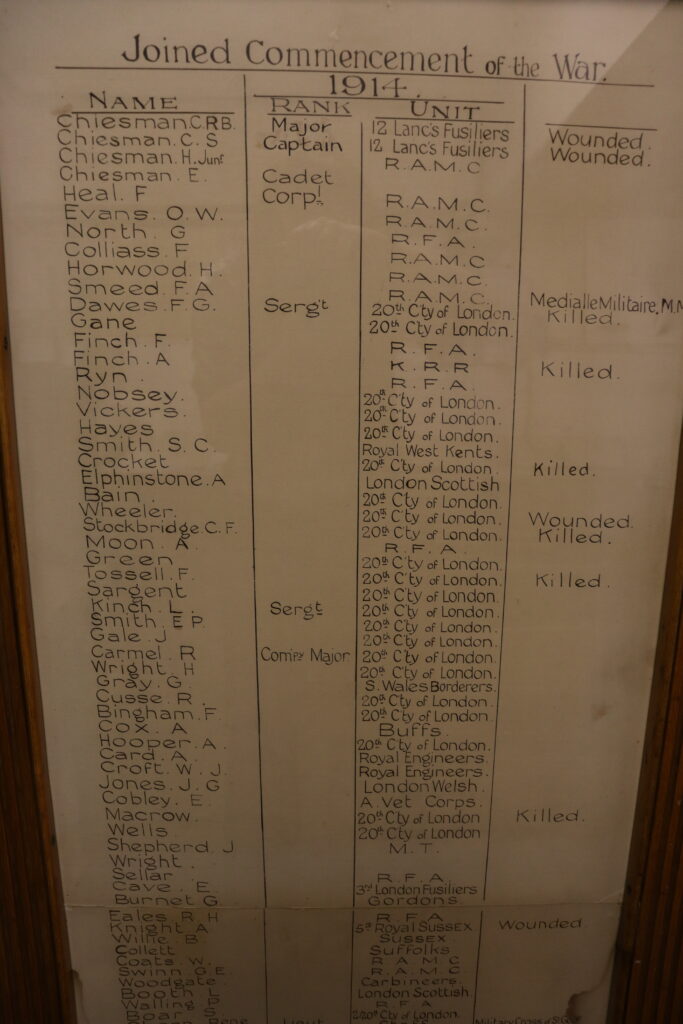 Joined Commencement of the War.
1914.
NAME RANK UNIT
Chiesman. C.R.B. Major 12 Lanc's Fusiliers Wounded.
Chiesman. C. S Captain 12 Lanc's Fusiliers Wounded.
Chiesman. H. Junr R.A.M.C
Chiesman. E. Cadet
Heal. F Corpl. R.A.M.C.
Evans. O. W. R.A.M.C.
North. G R.F.A.
Colliass. F R.A.M.C
Horwood. H. R.A.M.C.
Smeed. F. A R.A.M.C.
Dawes. F. G. Sergt 20th Cty of London. Medialle Militaire. M.M
Gane 20th Cty of London. Killed.
Finch. F. R.F.A.
Finch. A K.R.R Killed.
Ryn. R.F.A.
Nobsey. 20th Cty of London.
Vickers. 20th Cty of London.
Hayes 20th Cty of London.
Smith. S. C. Royal West Kents.
Crocket 20th Cty of London. Killed.
Elphinstone. A London Scottish
Bain. 20th Cty of London.
Wheeler. 20th Cty of London. Wounded.
Stockbridge. C. F. 20th Cty of London. Killed.
Moon. A. R.F.A.
Green 20th Cty of London.
Tossell. F. 20th Cty of London. Killed.
Sargent 20th Cty of London.
Kinch. L. Sergt 20th Cty of London.
Smith. E P. 20th Cty of London.
Gale. J 20th Cty of London.
Carmel. R Compy Major 20th Cty of London.
Wright. H 20th Cty of London.
Gray. G. S. Wales Borderers.
Cusse. R. 20th Cty of London.
Bingham. F. 20th Cty of London.
Cox. A Buffs.
Hooper. A. 20th Cty of London.
Card. A. Royal Engineers.
Croft. W. J. Royal Engineers.
Jones. J. G London Welsh.
Cobley. E. A. Vet Corps.
Macrow. 20th Cty of London Killed.
Wells. 20th Cty of London
Shepherd. J M.T.
Wright.
Sellar R.F.A.
Cave. E. 3rd London Fusiliers
Burnet G. Gordons.
Eales. R. H R.F.A Wounded
Knight. A 5th Royal Sussex
Willie. B. Sussex.
Collett Suffolks
Coats. W. R.A.M.C
Swinn. G. E. R.A.M.C.
Woodgate. Carbineers.
Booth. L London Scottish
Walling. P. R.F.A
Boar. S. 2/20th Cty of London.
Lieut Military Cross of St